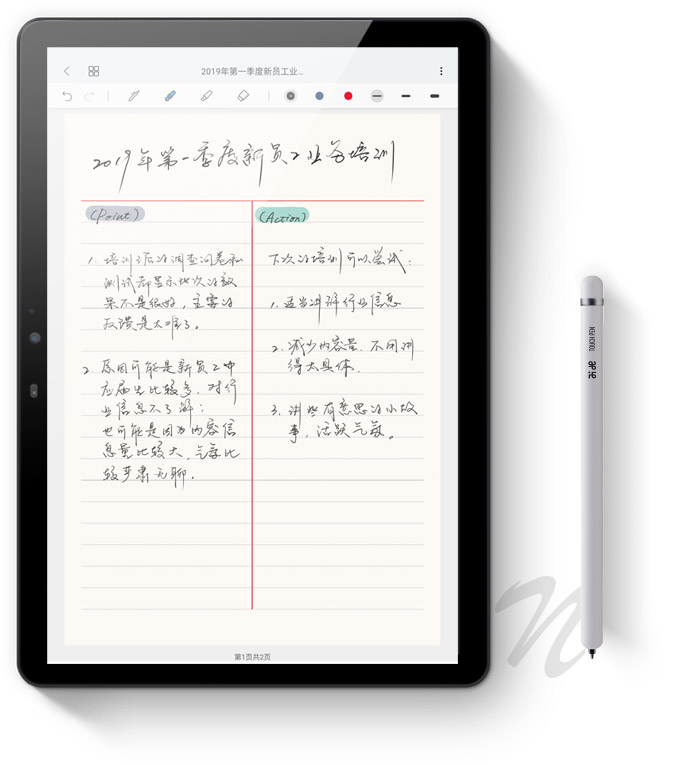 2019年第一季度新员工业...
2019年第一季度新员工业务培训
(Point)
1. 培训后的调查问卷和
测试都显示此次的效
果不是很好，主要的
反馈是太难了。
2. 原因可能是新员工中
应届生比较多，对行
业信息不了解；
也可能是因为内容信
息量比较大，气氛比
较严肃无聊.
(Action)
下次的培训可以尝试：
1. 适当讲解行业信息
2. 减少内容量，不用讲
得太具体.
3. 讲些有意思的小故
事，活跃气氛。
第1页共2页
TOUCH PEN